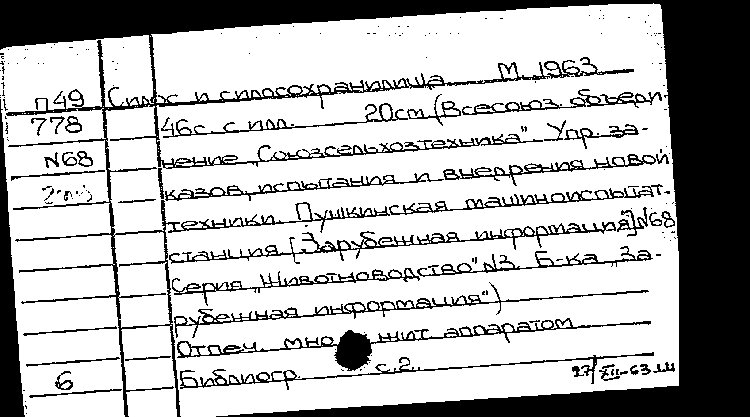 П49 Силос и силосохранилища. М. 1963
778 46с. с илл. 20см. (Всесоюз. объеди-
N68 нение „Союзсельхозтехника". Упр. за-
казов, испытания и внедрения новой
техники. Пушкинская машиноиспытат.
станция. [Зарубежная информация] N68
Серия „Животноводство" N3. Б-ка „За-
рубежная информация")
Отпеч. мно жит. аппаратом
6 Библиогр. с.2.
27/XII-63